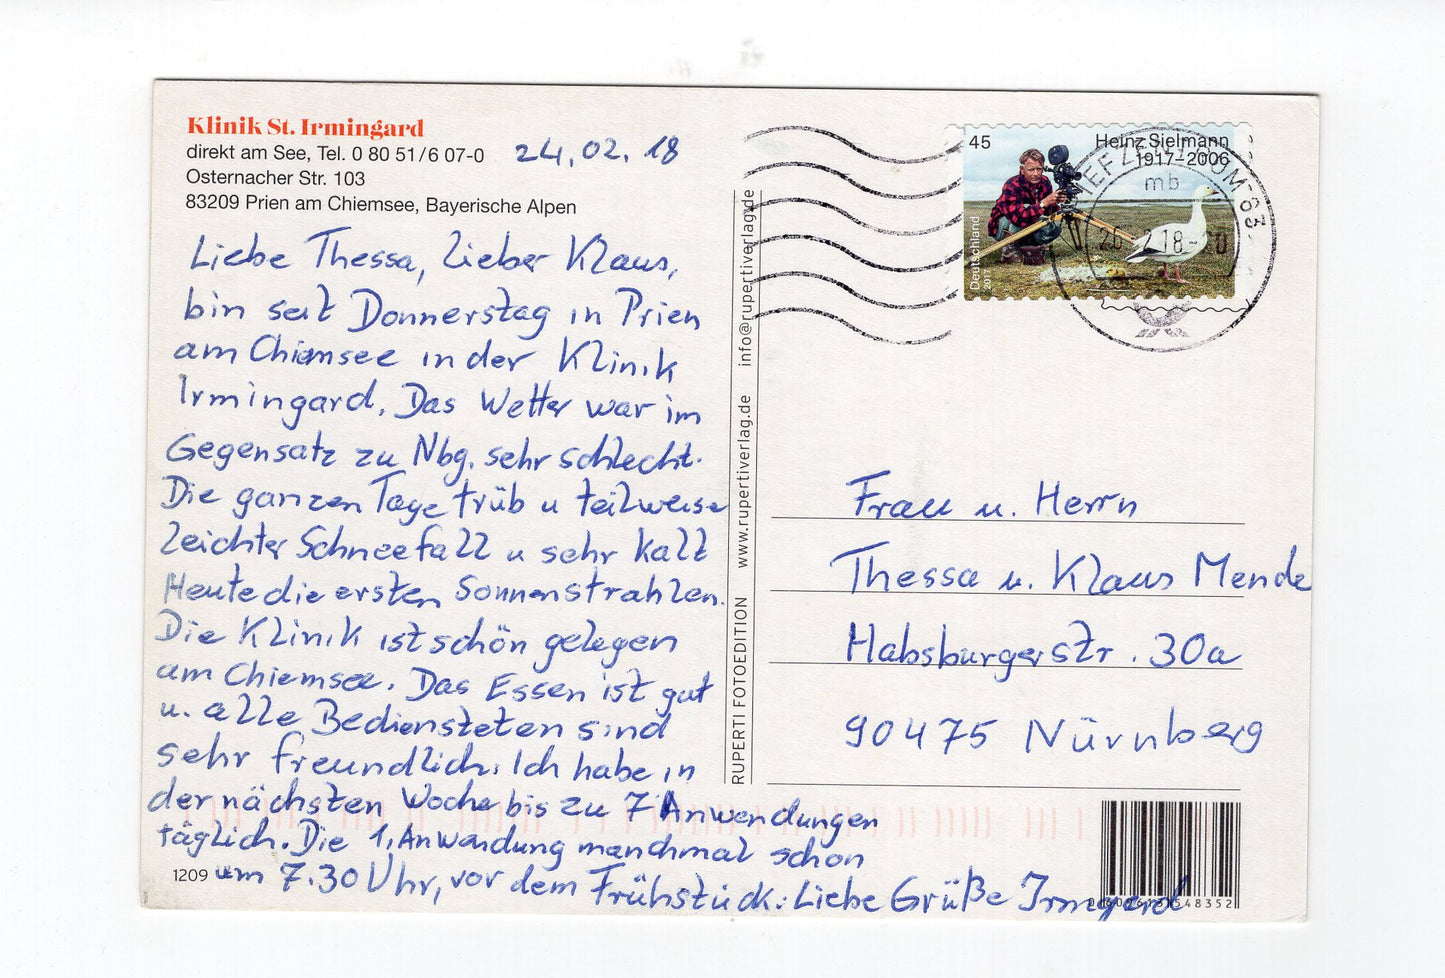 Klinik St. Irmingard
direkt am See, Tel. 0 80 51/6 07-0
24.02.18
Osternacher Str. 103
83209 Prien am Chiemsee, Bayerische Alpen
Liebe Thessa, lieber Klaus,
bin seit Donnerstag in Prien
am Chiemsee in der Klinik
Irmingard. Das Wetter war im
Gegensatz zu Nbg. sehr schlecht.
Die ganzen Tage trüb u teilweise
leichter Schneefall u sehr kalt
Heute die ersten Sonnenstrahlen.
Die Klinik ist schön gelegen
am Chiemsee. Das Essen ist gut
u. alle Bediensteten sind
sehr freundlich. Ich habe in
der nächsten Woche bis zu 7 Anwendungen
täglich. Die 1. Anwendung manchmal schon
um 7.30 Uhr, vor dem Frühstück. Liebe Grüße Irmgard
1209
RUPERTI FOTOEDITION www.rupertiverlag.de info@rupertiverlag.de
45
Heinz Sielmann
1917–2006
Deutschland
2017
mb
18-20
83
Frau u. Herrn
Thessa u. Klaus Mende
Habsburgerstr. 30a
90475 Nürnberg